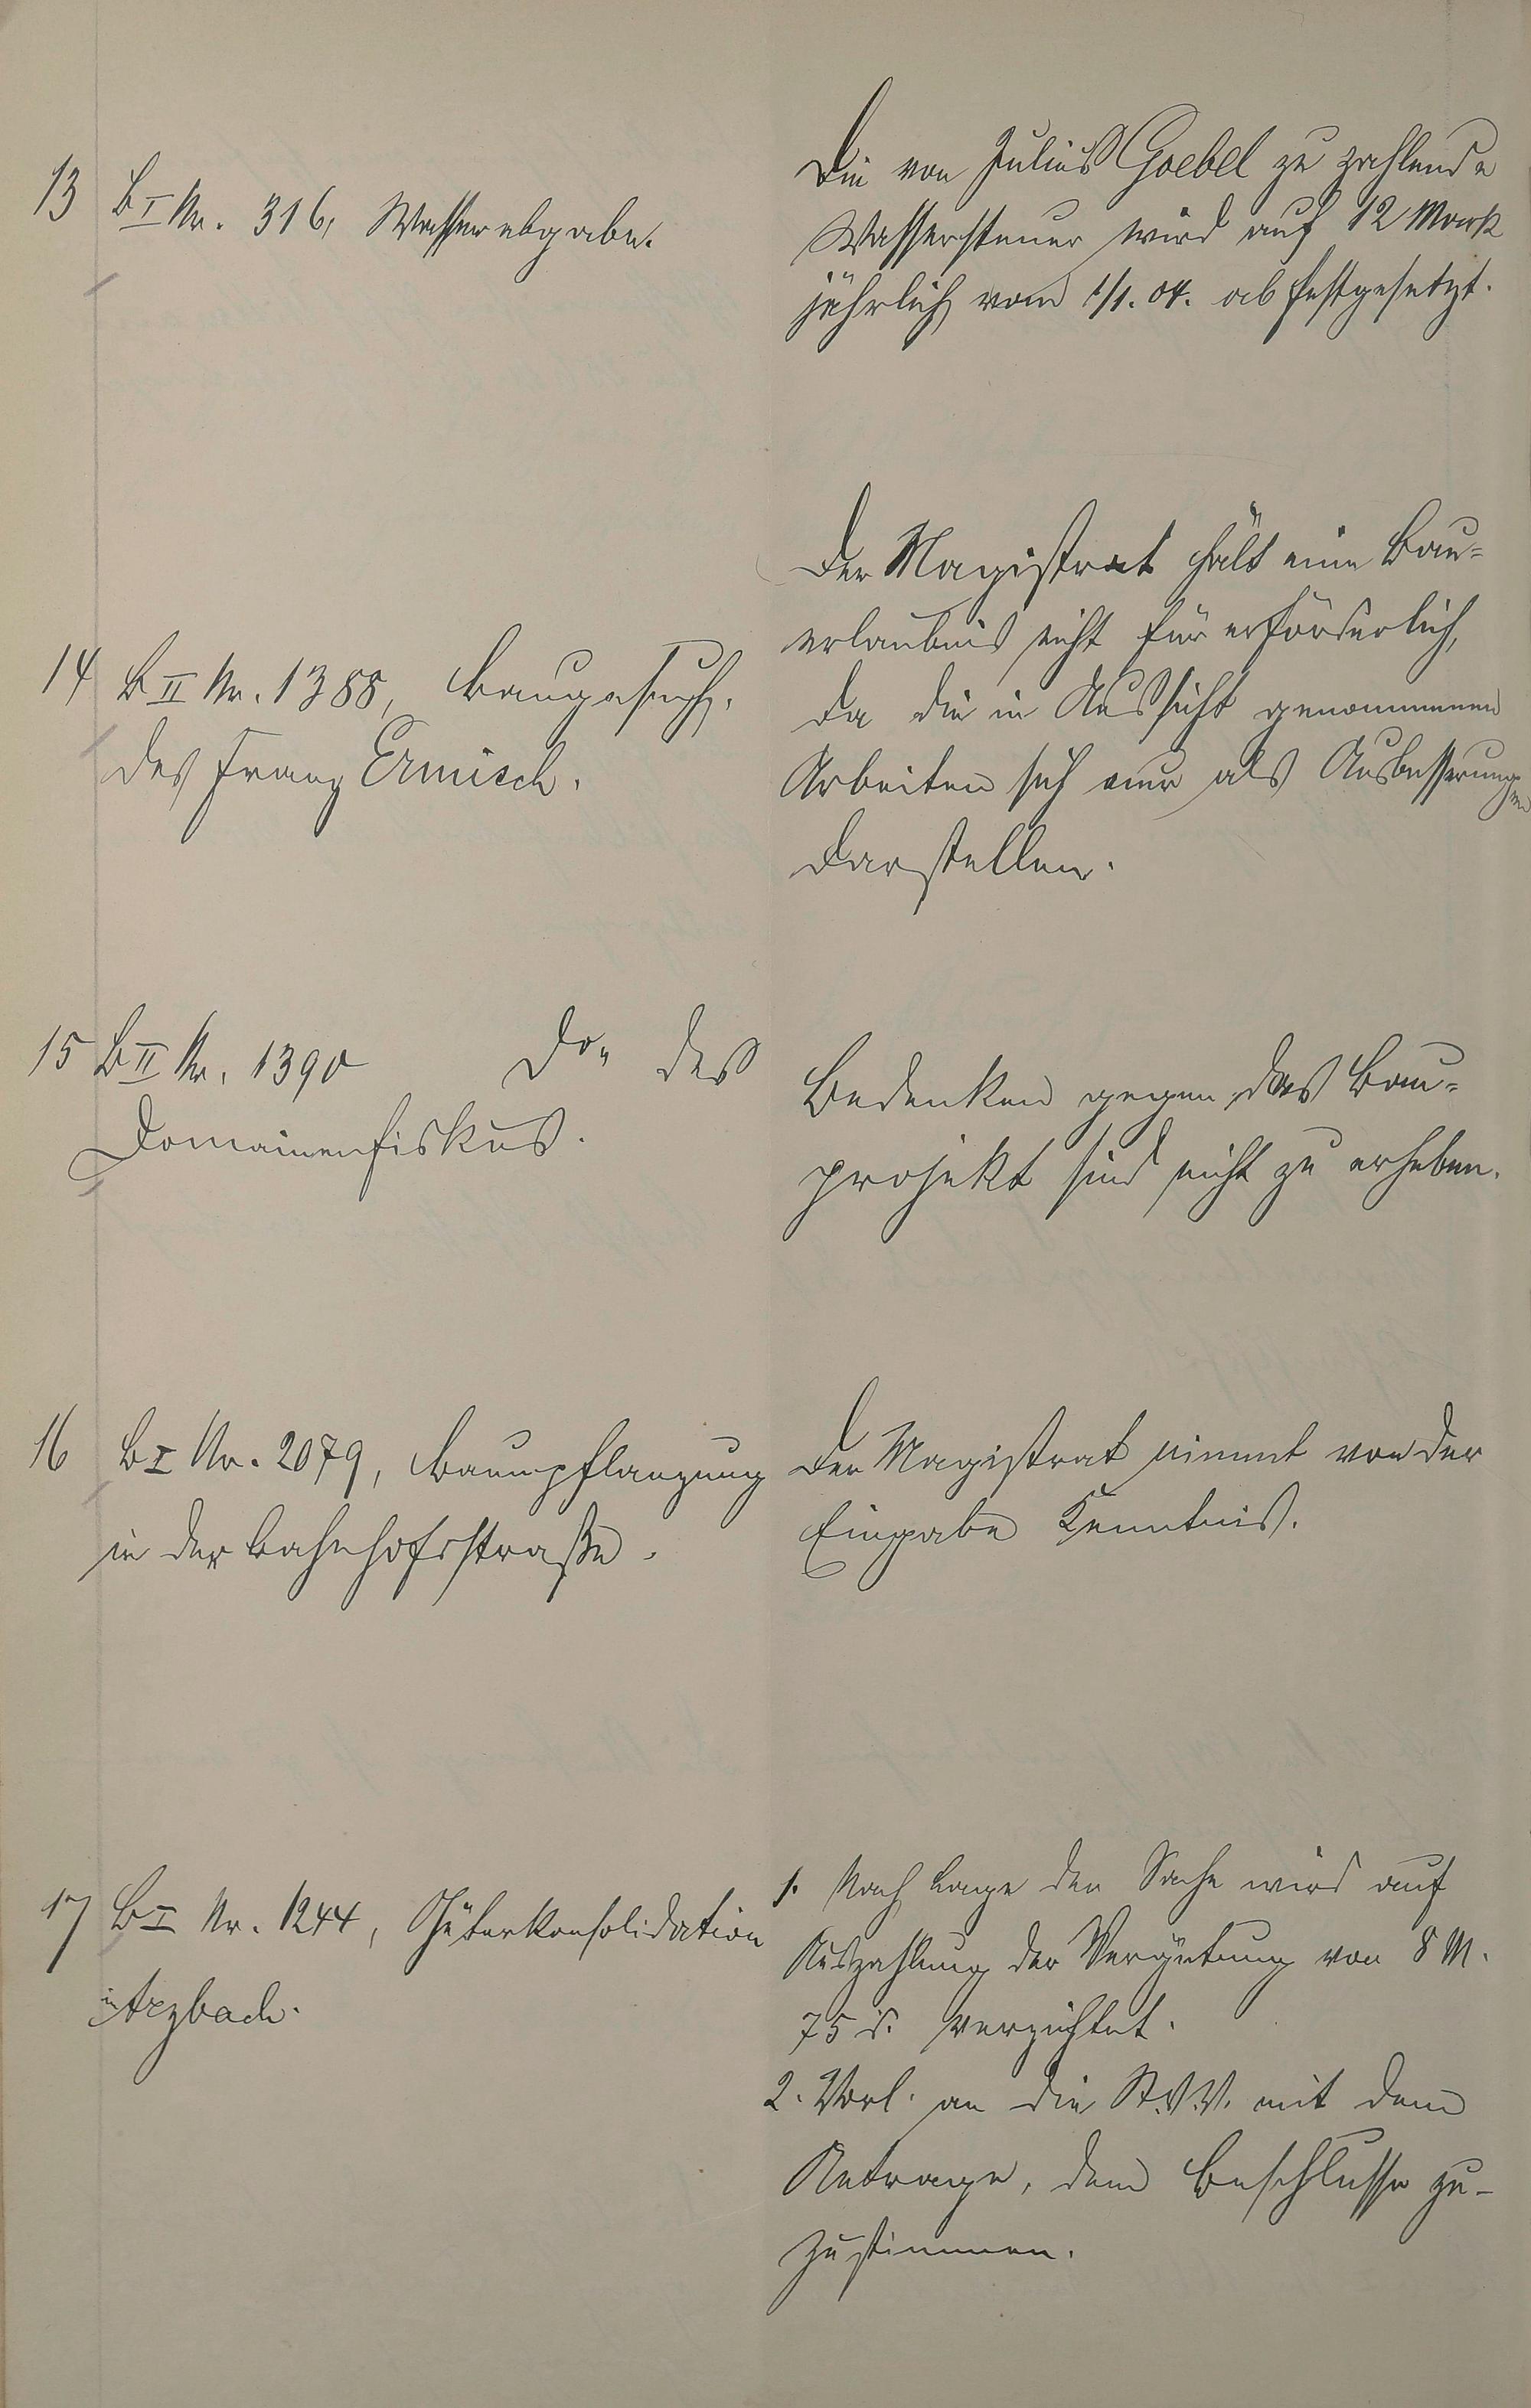 13 B I Nr. 316, Wasserabgabe.
Die von Julius Goebel zu zahlende
Wassersteuer wird auf 12 Mark
jährlich vom 1/1. 04. ab festgesetzt.
14 B II Nr. 1388, Baugesuch
des Franz Ermisch.
Der Magistrat hält eine Bau=
erlaubnis nicht für erforderlich,
da die in Aussicht genommenen
Arbeiten sich nur als Ausbesserungen
darstellen.
15 B II Nr. 1390 Do. des
Domainenfiskus.
Bedenken gegen das Bau=
projekt sind nicht zu erheben.
16 B I Nr. 2079, Baumpflanzung
in der Bahnhofsstraße.
Der Magistrat nimmt von der
Eingabe Kenntnis.
17 B I Nr. 1244, Güterkonsolidation
in Arzbach.
1. Nach Lage der Sache wird auf
Auszahlung der Vergütung von 8 M.
75 d. verzichtet.
2. Vorl. an die St.V.V. mit dem
Antrage, dem Beschlusse zu-
zustimmen.